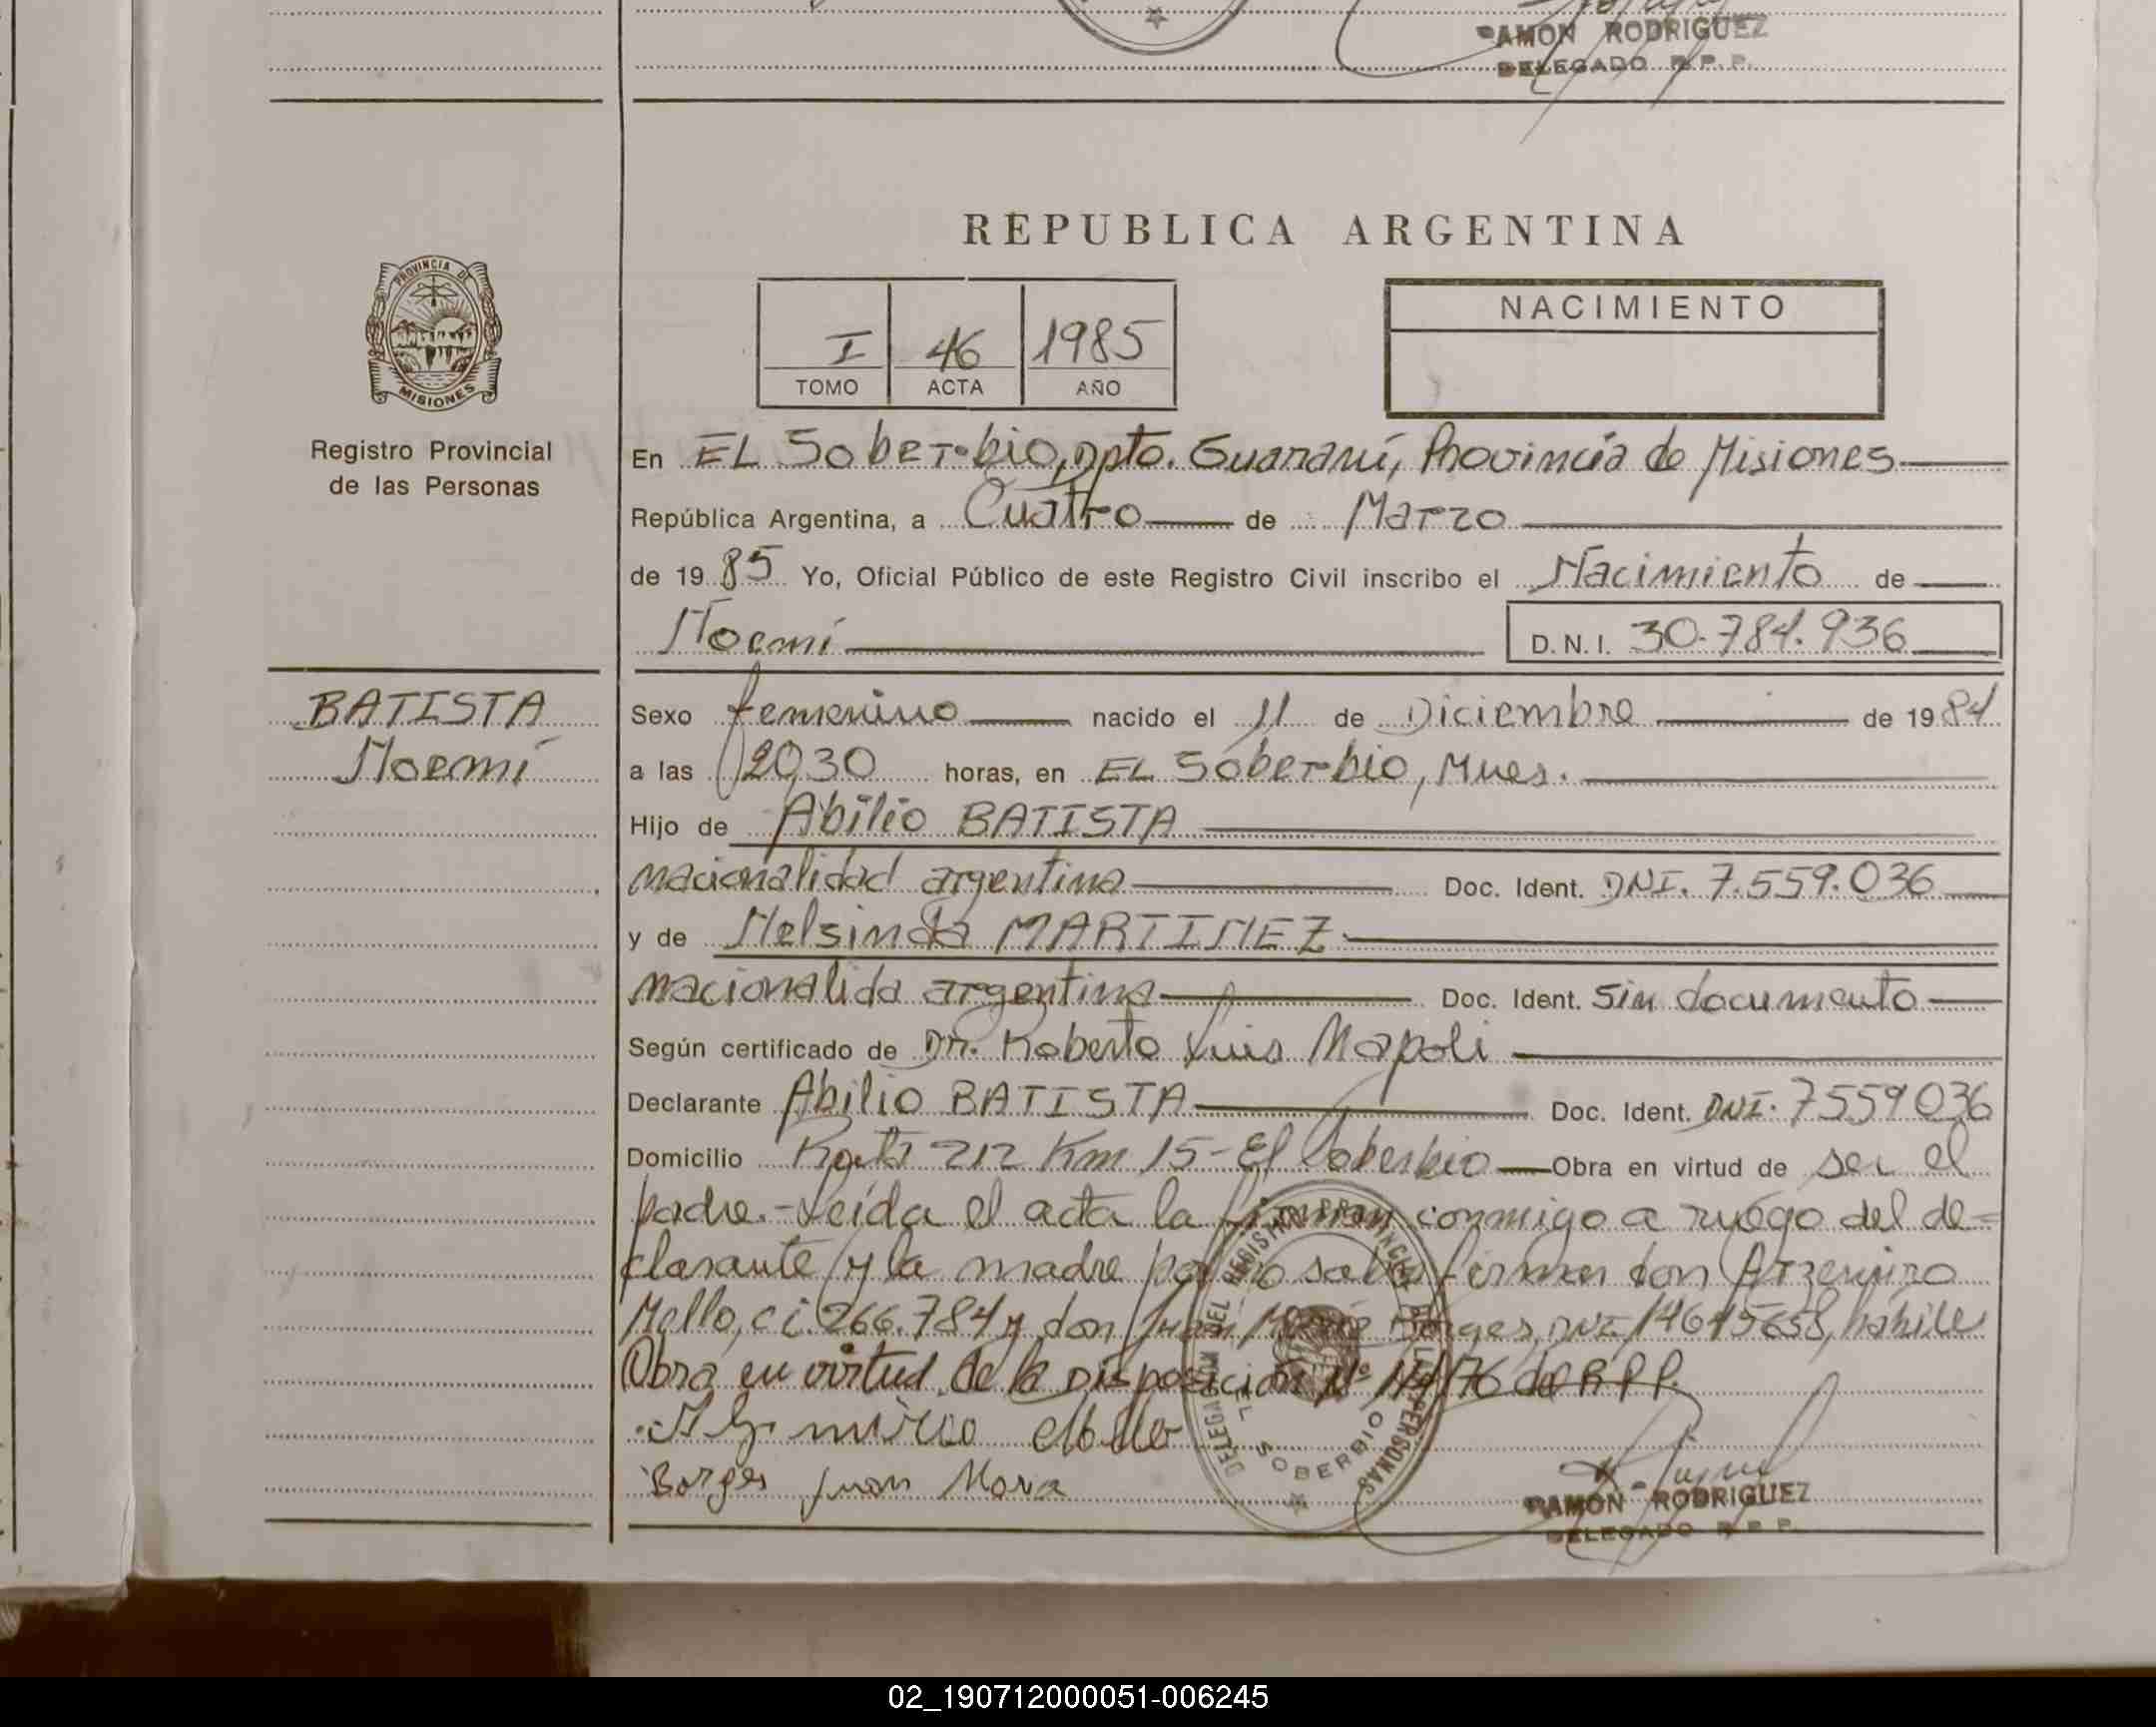 RAMON RODRIGUEZ
DELEGADO R.P.P.
REPUBLICA ARGENTINA
PROVINCIA DE
MISIONES
Registro Provincial
de las Personas
I 46 1985
TOMO ACTA AÑO
NACIMIENTO
En EL Soberbio, Dpto. Guaraní, Provincia de Misiones
República Argentina, a Cuatro de Marzo
de 19 85 Yo, Oficial Público de este Registro Civil inscribo el Nacimiento de
Noemí
D.N.I. 30.784.936
BATISTA
Noemí
Sexo femenino nacido el 11 de Diciembre de 19 84
a las 20,30 horas, en EL Soberbio, Mnes.
Hijo de Abilio BATISTA
nacionalidad argentina Doc. Ident. DNI. 7.559.036
y de Nelsinda MARTINEZ
nacionalida argentina Doc. Ident. Sin documento
Según certificado de Dr. Roberto Luis Napoli
Declarante Abilio BATISTA Doc. Ident. DNI. 7559036
Domicilio Ruta 212 Km 15-El Soberbio Obra en virtud de ser el
padre.-Leída el acta la firman conmigo a ruego del de=
clarante y la madre por no saber firmar don Arzemiro
Mello, ci. 266.784 y don Juan Borges, DNI. 14615658, hábile
Obra en virtud de la Disposición Nº /76 del R.P.P.
Borges Juan Mora
DELEGACION DEL REGISTRO PROVINCIAL DE LAS PERSONAS
EL SOBERBIO
RAMON RODRIGUEZ
DELEGADO R.P.P.
02_190712000051-006245